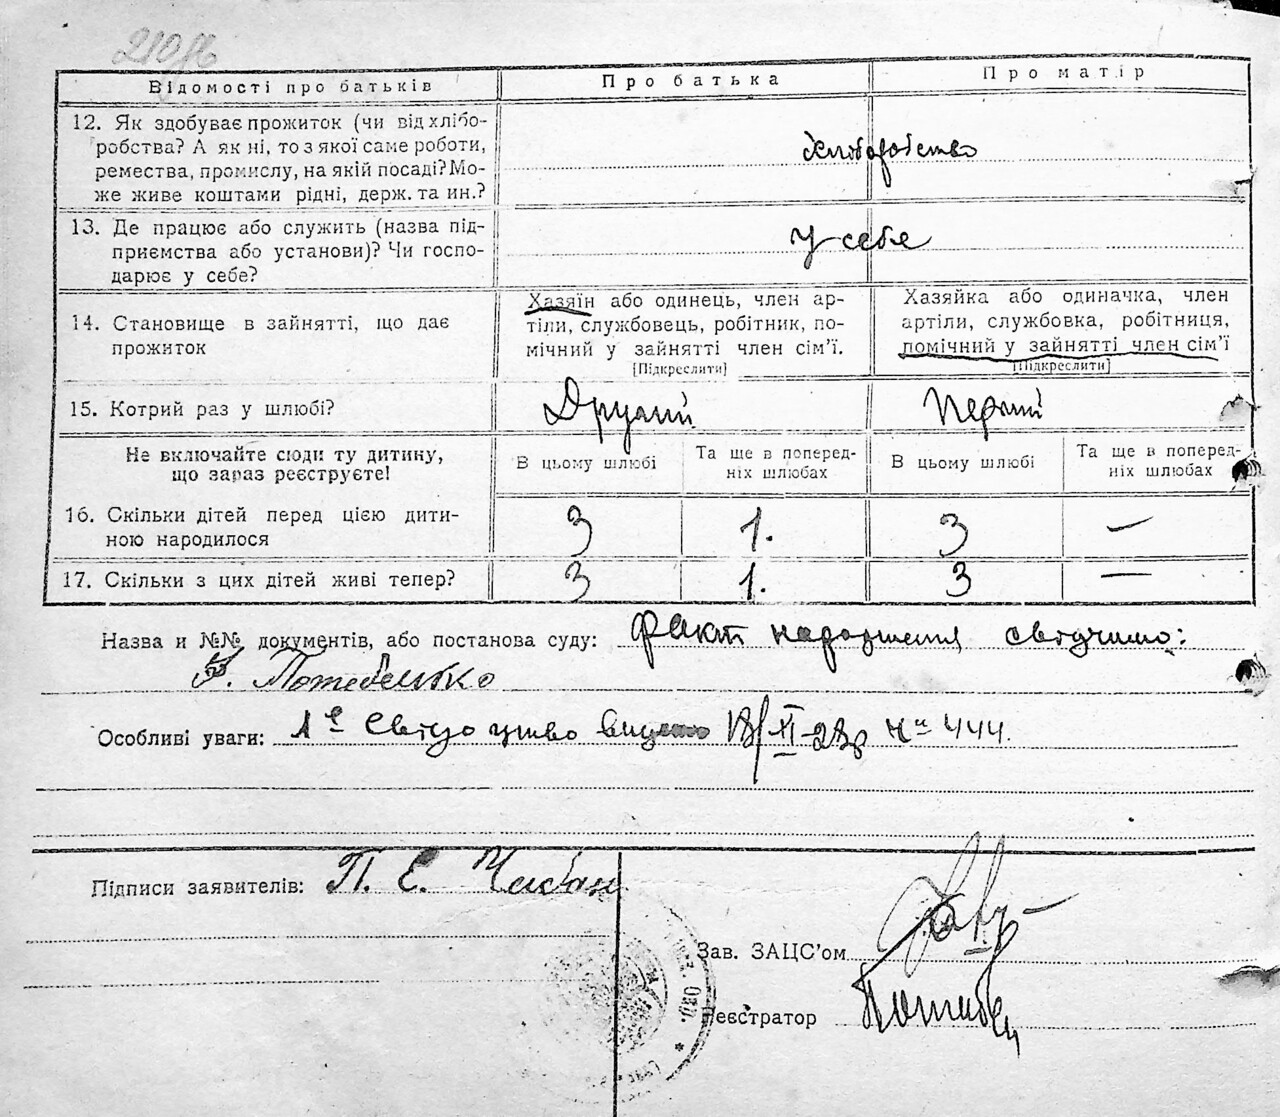 210зв
Відомості про батьків
Про батька
Про матір
12. Як здобуває прожиток (чи від хлібо-
робства? А як ні, то з якої саме роботи,
ремества, промислу, на якій посаді? Мо-
же живе коштами рідні, держ. та ин.?
хліборобство
13. Де працює або служить (назва під-
приємства або установи)? Чи госпо-
дарює у себе?
у себе
14. Становище в зайнятті, що дає
прожиток
Хазяїн або одинець, член ар-
тіли, службовець, робітник, по-
мічний у зайнятті член сім'ї.
[Підкреслити]
Хазяйка або одиначка, член
артіли, службовка, робітниця,
помічний у зайнятті член сім'ї
[Підкреслити]
15. Котрий раз у шлюбі?
Другий
Перший
Не включайте сюди ту дитину,
що зараз реєструєте!
В цьому шлюбі
Та ще в поперед-
ніх шлюбах
В цьому шлюбі
Та ще в поперед-
ніх шлюбах
16. Скільки дітей перед цією дити-
ною народилося
3 1. 3 —
17. Скільки з цих дітей живі тепер?
3 1. 3 —
Назва и №№ документів, або постанова суду: Факт народження свідчимо:
Потебенько
Особливі уваги: 1е Свідоцтво видано 18/XI-28р № 444.
Підписи заявителів: П. Е. Чабан
Зав. ЗАЦС'ом
Реєстратор